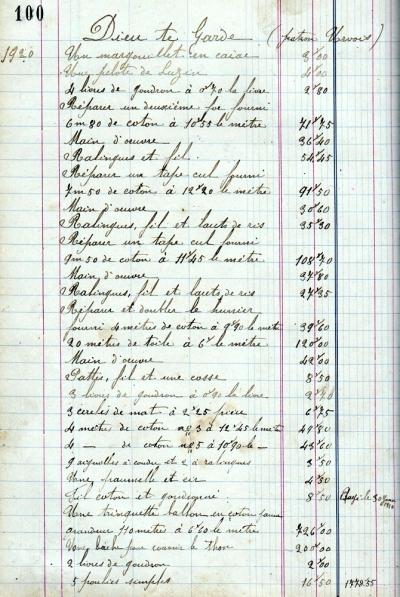 100
Dieu te Garde (patron Vervois)
1920 Un margouillet en caisse 3f00
Une pelote de Luzin 4f00
4 livres de goudron à 0f70 la livre 2f80
Réparer un deuxième foc fourni
6m80 de coton à 10f55 le mètre 71f75
Main d'œuvre 36f40
Ralingues et fil 54f45
Réparer un tape cul fourni
7m50 de coton à 12f20 le mètre 91f50
Main d'œuvre 30f60
Ralingues, fil et lacets de ris 35f30
Réparer un tape cul fourni
9m50 de coton à 11f45 le mètre 108f70
Main d'œuvre 37f80
Ralingues, fil et lacets de ris 27f35
Réparer et doubler le hunier
fourni 4 mètres de coton à 9f90 le mètre 39f60
20 mètres de toile à 6f le mètre 120f00
Main d'œuvre 42f00
Pattes, fil et une cosse 8f50
3 livres de goudron à 0f90 la livre 2f70
3 cercles de mat à 2f25 pièce 6f75
4 mètres de coton no 3 à 12f45 le mètre 49f80
4 — de coton no 5 à 10f90 le — 43f60
9 aiguilles à coudre et 2 à ralingues 3f50
Une paumelle et cir 4f50
Fil coton et goudronné 8f50 Payé le 30
Une trinquette ballon en coton
grandeur 110 mètres à 6f60 le mètre 726f00
Une bâche pour couvrir le thon 200f00
2 livres de goudron 2f00
5 poulies simples 16f50 1778.35